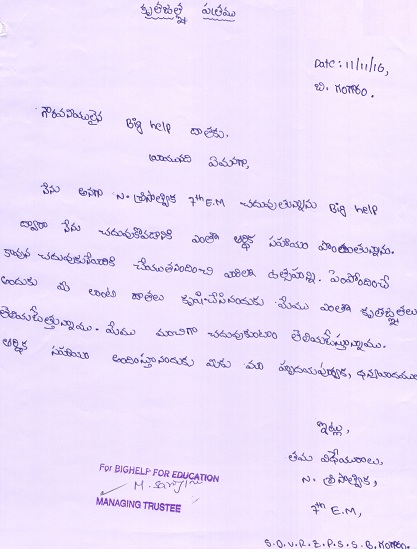 కృతజ్ఞత పత్రము
Date : 11/11/16,
బి. గంగారం.
గౌరవనీయులైన Big help దాతకు,
వ్రాయునది ఏమనగా,
నేను అనగా N. శ్రీసాత్విక 7th E.M చదువుతున్నాను Big help
ద్వారా నేను చదువుకోవడానికి ఎంతో ఆర్థిక సహాయం పొందుతున్నాను.
కావున చదువుకునేవారికి చేయూతనందించి వారిలో ఉత్సాహాన్ని పెంపొందించే
అందుకు మీ లాంటి దాతలు కృషిచేసినందుకు మేము ఎంతో కృతజ్ఞతలు
తెలియజేస్తున్నాము. మేము మంచిగా చదువుకుంటాం తెలియజేస్తున్నాము.
ఆర్థిక సహాయం అందిస్తూనందుకు మీకు మా హృదయపూర్వక, ధన్యవాదములు
ఇట్లు,
తమ విధేయురాలు,
N. శ్రీసాత్విక,
7th E.M,
S.D.V.R.Z.P.S.S B. గంగారం.
For BIGHELP FOR EDUCATION
MANAGING TRUSTEE